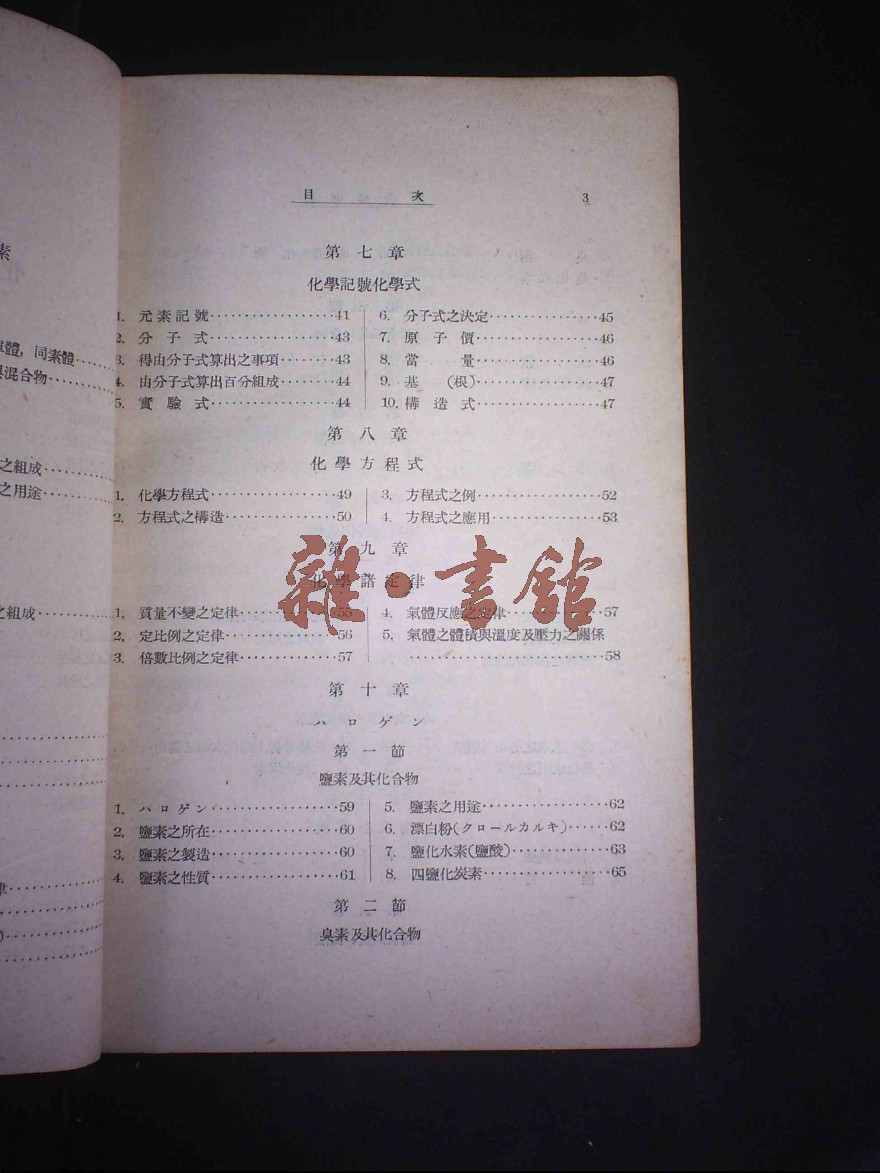 素
單體，同素體……
與混合物……
之組成……
之用途……
之組成……
律……
目 次 3
第七章
化學記號化學式
1. 元素記號……41
2. 分子式……43
3. 得由分子式算出之事項……43
4. 由分子式算出百分組成……44
5. 實驗式……44
6. 分子式之決定……45
7. 原子價……46
8. 當量……46
9. 基（根）……47
10. 構造式……47
第八章
化學方程式
1. 化學方程式……49
2. 方程式之構造……50
3. 方程式之例……52
4. 方程式之應用……53
第九章
化學諸定律
1. 質量不變之定律……55
2. 定比例之定律……56
3. 倍數比例之定律……57
4. 氣體反應之定律……57
5. 氣體之體積與溫度及壓力之關係
……58
第十章
ハロゲン
第一節
鹽素及其化合物
1. ハロゲン……59
2. 鹽素之所在……60
3. 鹽素之製造……60
4. 鹽素之性質……61
5. 鹽素之用途……62
6. 漂白粉（クロールカルキ）……62
7. 鹽化水素（鹽酸）……63
8. 四鹽化炭素……65
第二節
臭素及其化合物
雜·書館